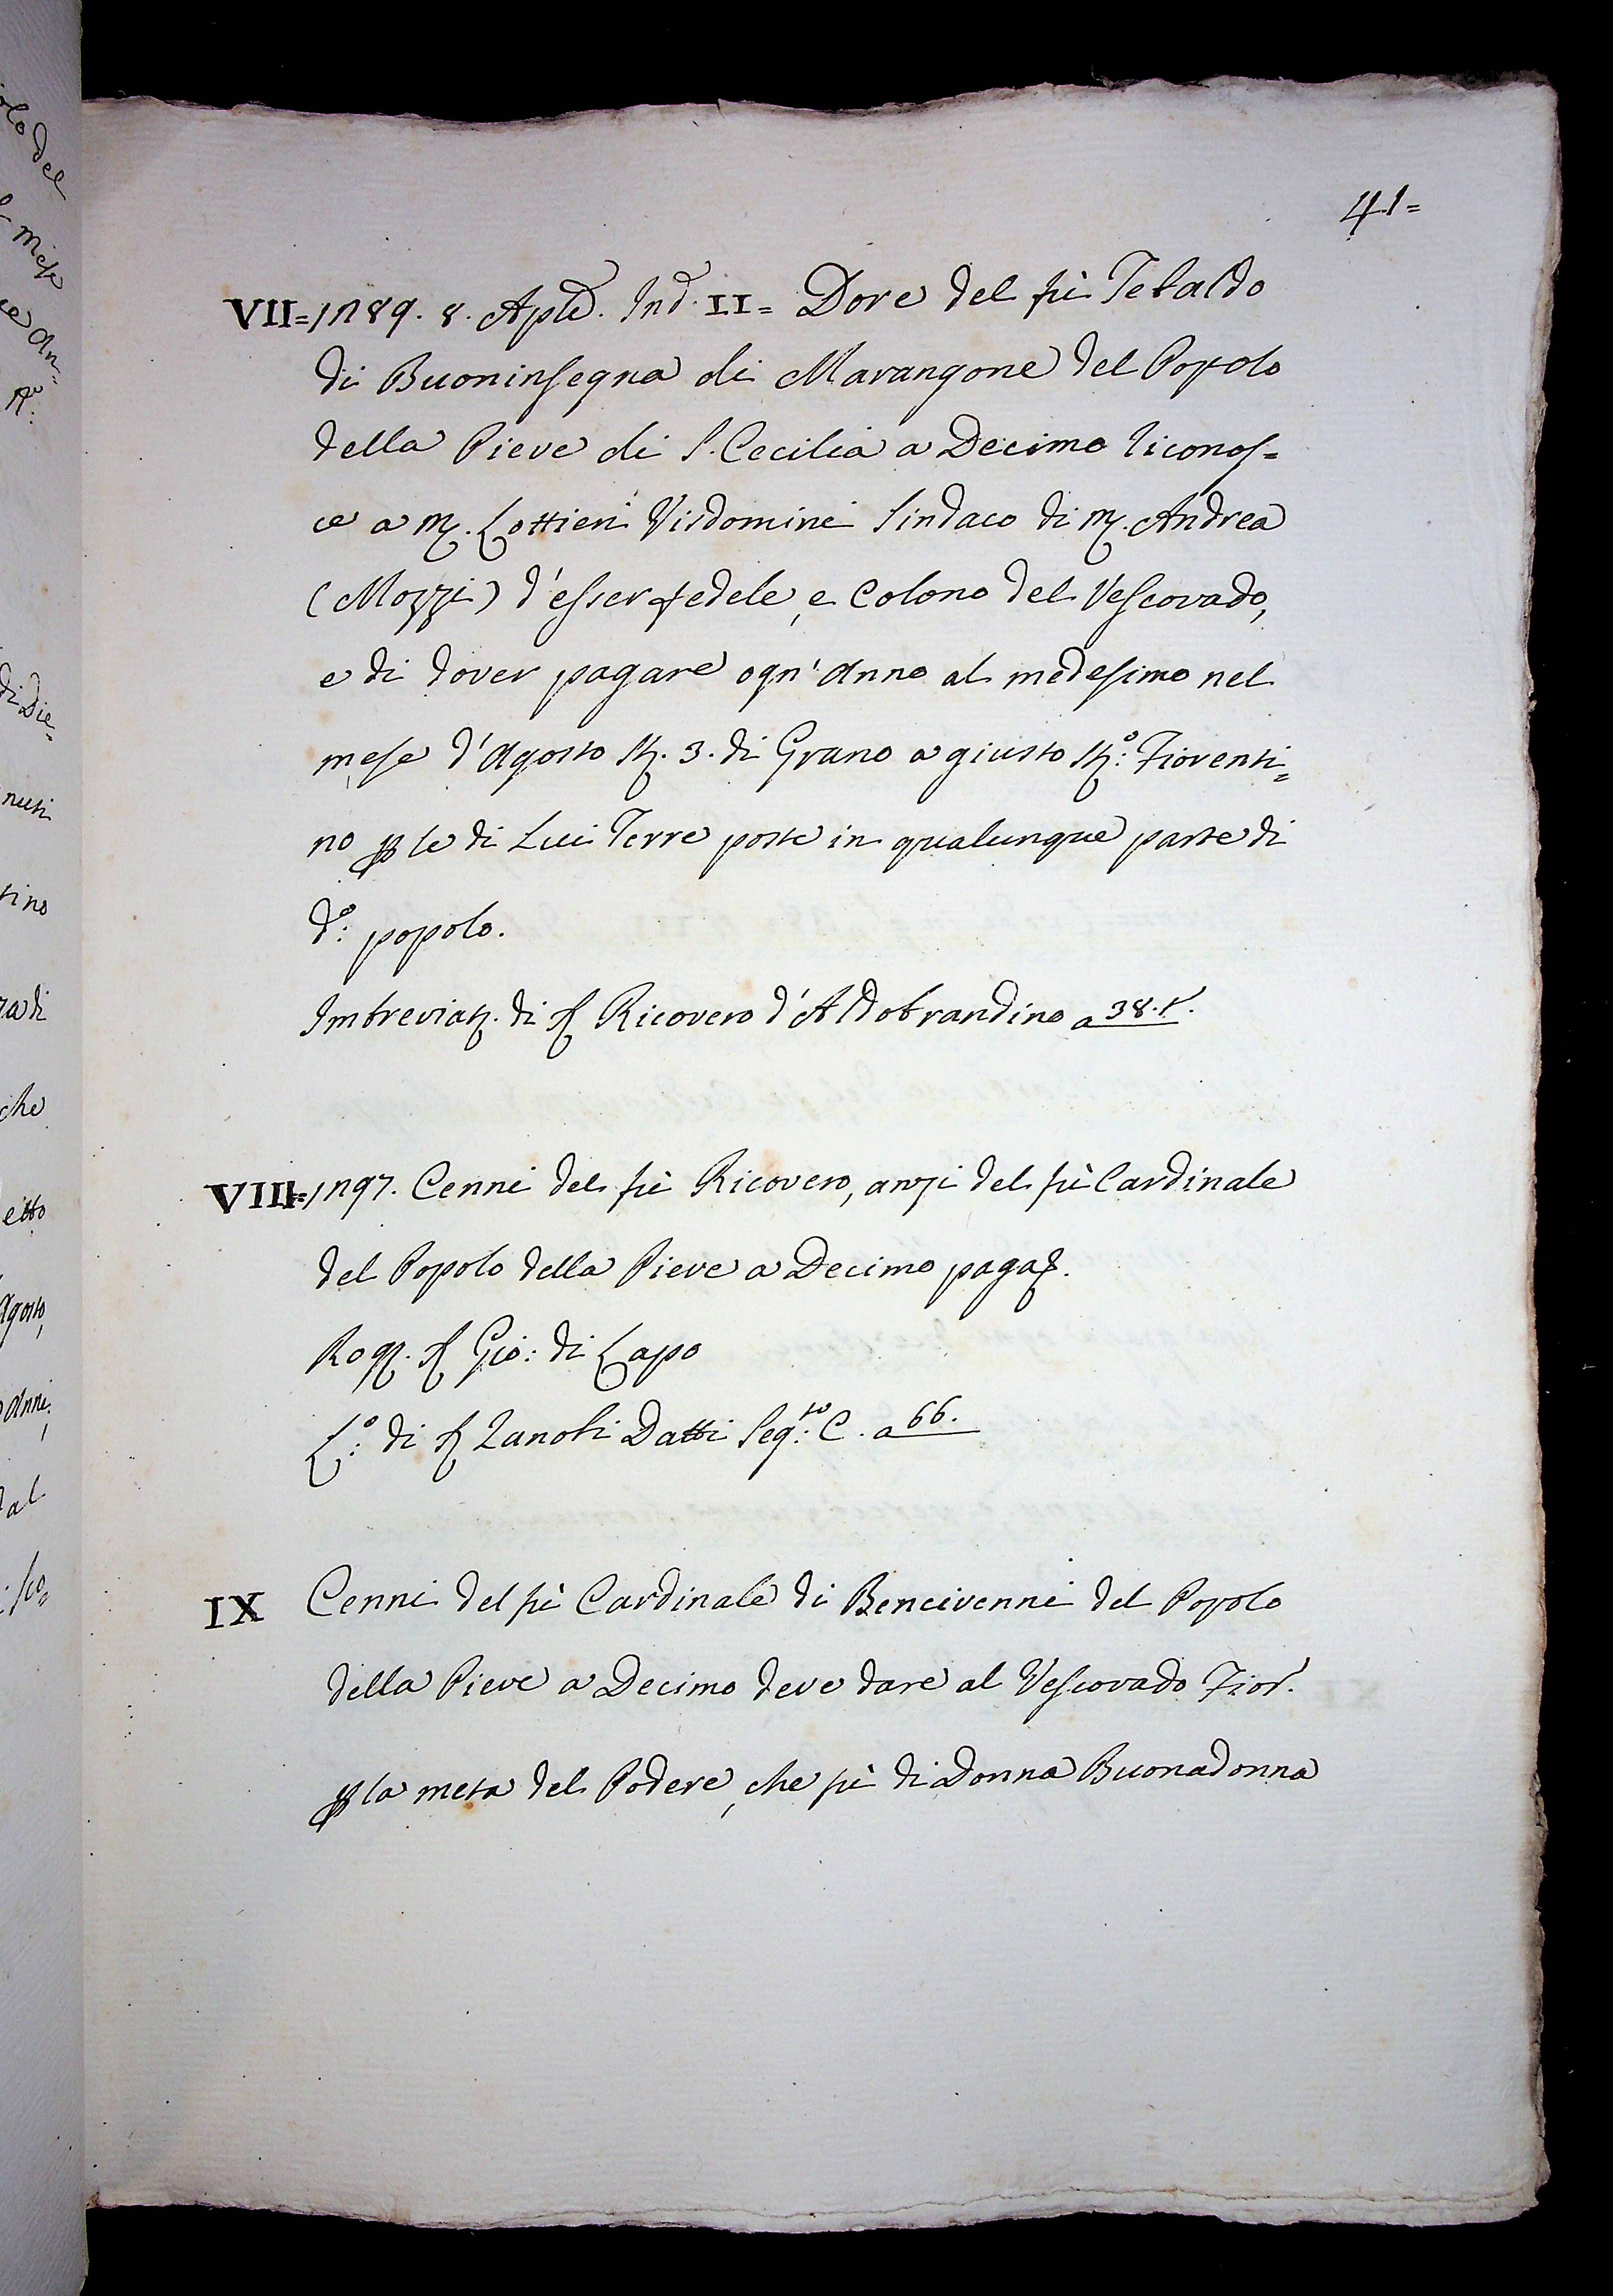 41=
VII= 1289. 8. Aple. Ind. II= Dore del fù Tebaldo
di Buoninsegna di Marangone del Popolo
della Pieve di S. Cecilia a Decimo riconos=
ce a M. Lottieri Visdomini Sindaco di M. Andrea
(Mozzi) d'esser fedele, e Colono del Vescovado,
e di dover pagare ogn'Anno al medesimo nel
mese d'Agosto St. 3. di Grano a giusto St.º: Fiorenti=
no p le di Lui Terre poste in qualunque parte di
d.º: popolo.
Imbreviaz. di S Ricovero d'Aldobrandino a 38. t.
VIII= 1297. Cenni del fù Ricovero, anzi del fù Cardinale
del Popolo della Pieve a Decimo paga
Rog. S Gio: di Lapo
L.º: di S Zanobi Datti Seg.to: C. a 66.
IX Cenni del fù Cardinale di Bencivenni del Popolo
della Pieve a Decimo deve dare al Vescovado Fior.
p la meta del Podere, che fù di Donna Buonadonna